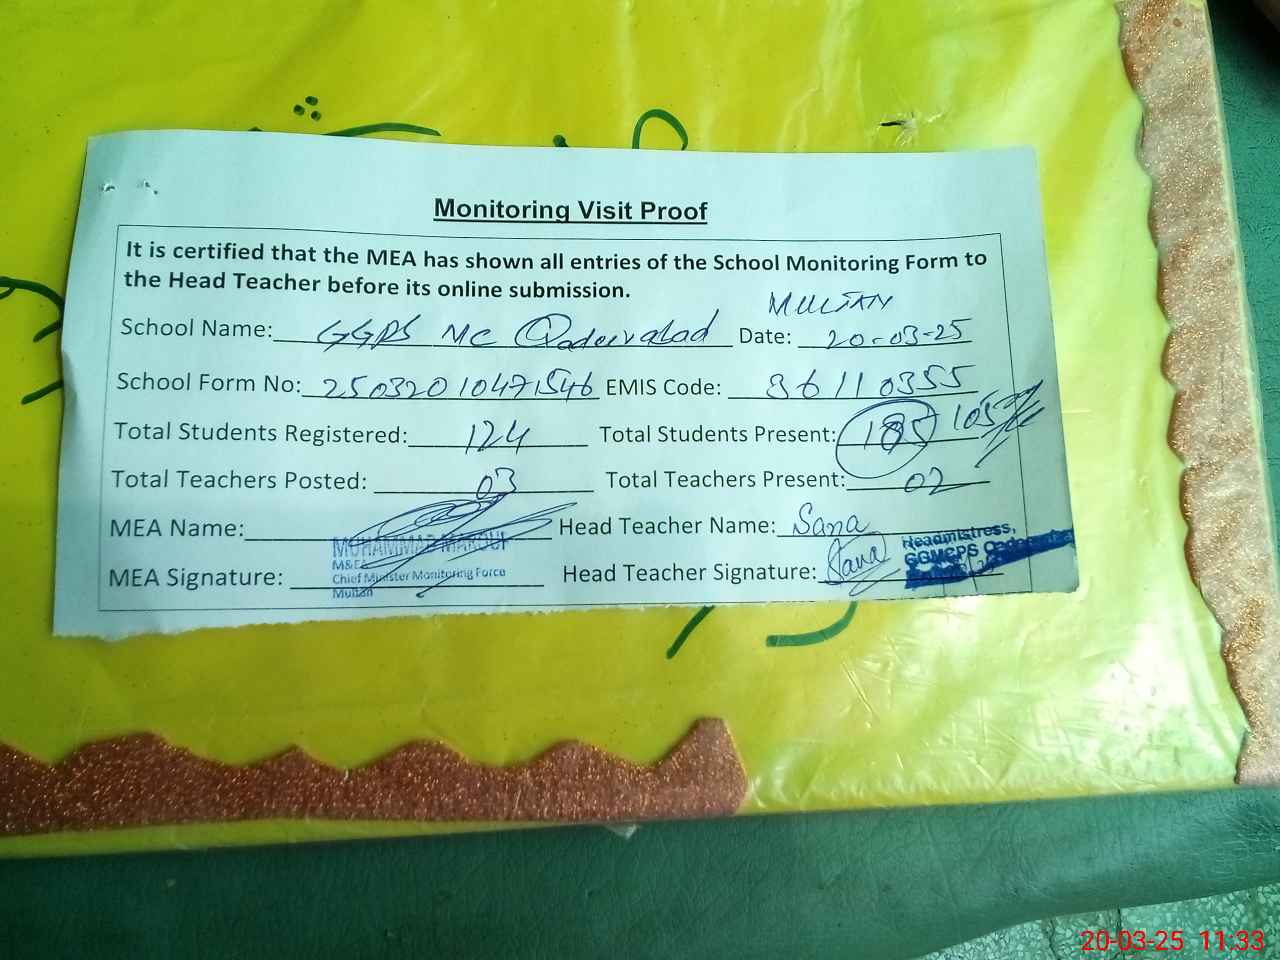 Monitoring Visit Proof
It is certified that the MEA has shown all entries of the School Monitoring Form to
the Head Teacher before its online submission.
MULTAN
School Name: GGPS MC Qadeerabad Date: 20-03-25
School Form No: 25032010471546 EMIS Code: 36110355
Total Students Registered: 124 Total Students Present: 185 105
Total Teachers Posted: 03 Total Teachers Present: 02
MEA Name: Head Teacher Name: Sana
MUHAMMAD
M&E
Chief Minister Monitoring Force
Multan
MEA Signature: Head Teacher Signature: Sana
Headmistress,
GGMCPS
20-03-25 11:33